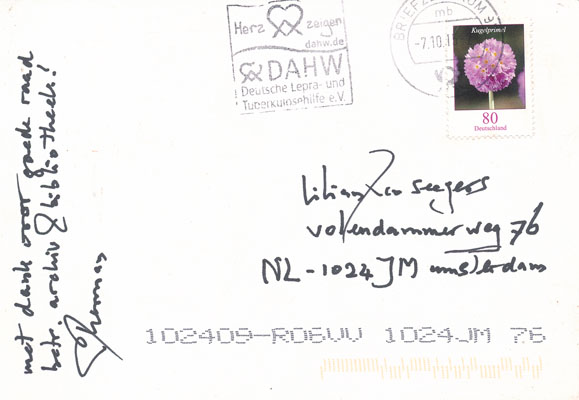 Herz zeigen
dahw.de
DAHW
Deutsche Lepra- und
Tuberkulosehilfe e.V.
BRIEFZENTRUM
mb
-7.10.1
Kugelprimel
80
Deutschland
met dank voor goede raad
betr. archiv & bibliotheek!
Lilian Seegers
volendammerweg 76
NL-1024 JM amsterdam
1024JM 76